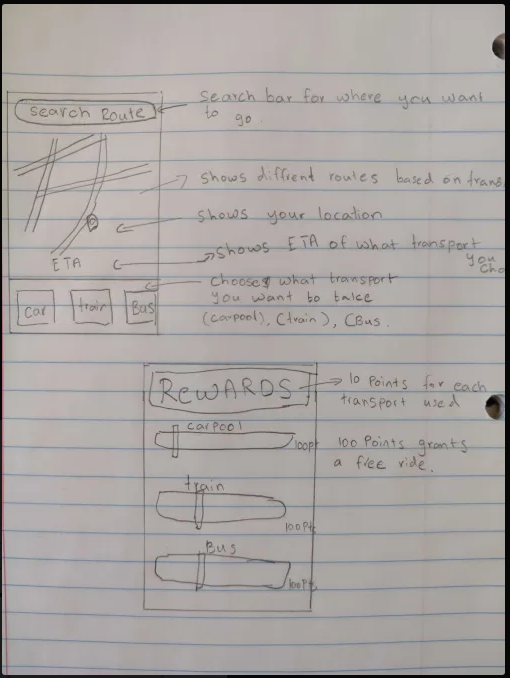 Search Route
Search bar for where you want
to go.
shows diffrent routes based on trans
shows your location
shows ETA of what transport
you
cho
ETA
chooses what transport
you want to take
(carpool), (train), (Bus.
car
train
Bus
REWARDS
10 Points for each
transport used
carpool
100pt
100 Points grants
a free ride.
train
100Pts
Bus
100Pts